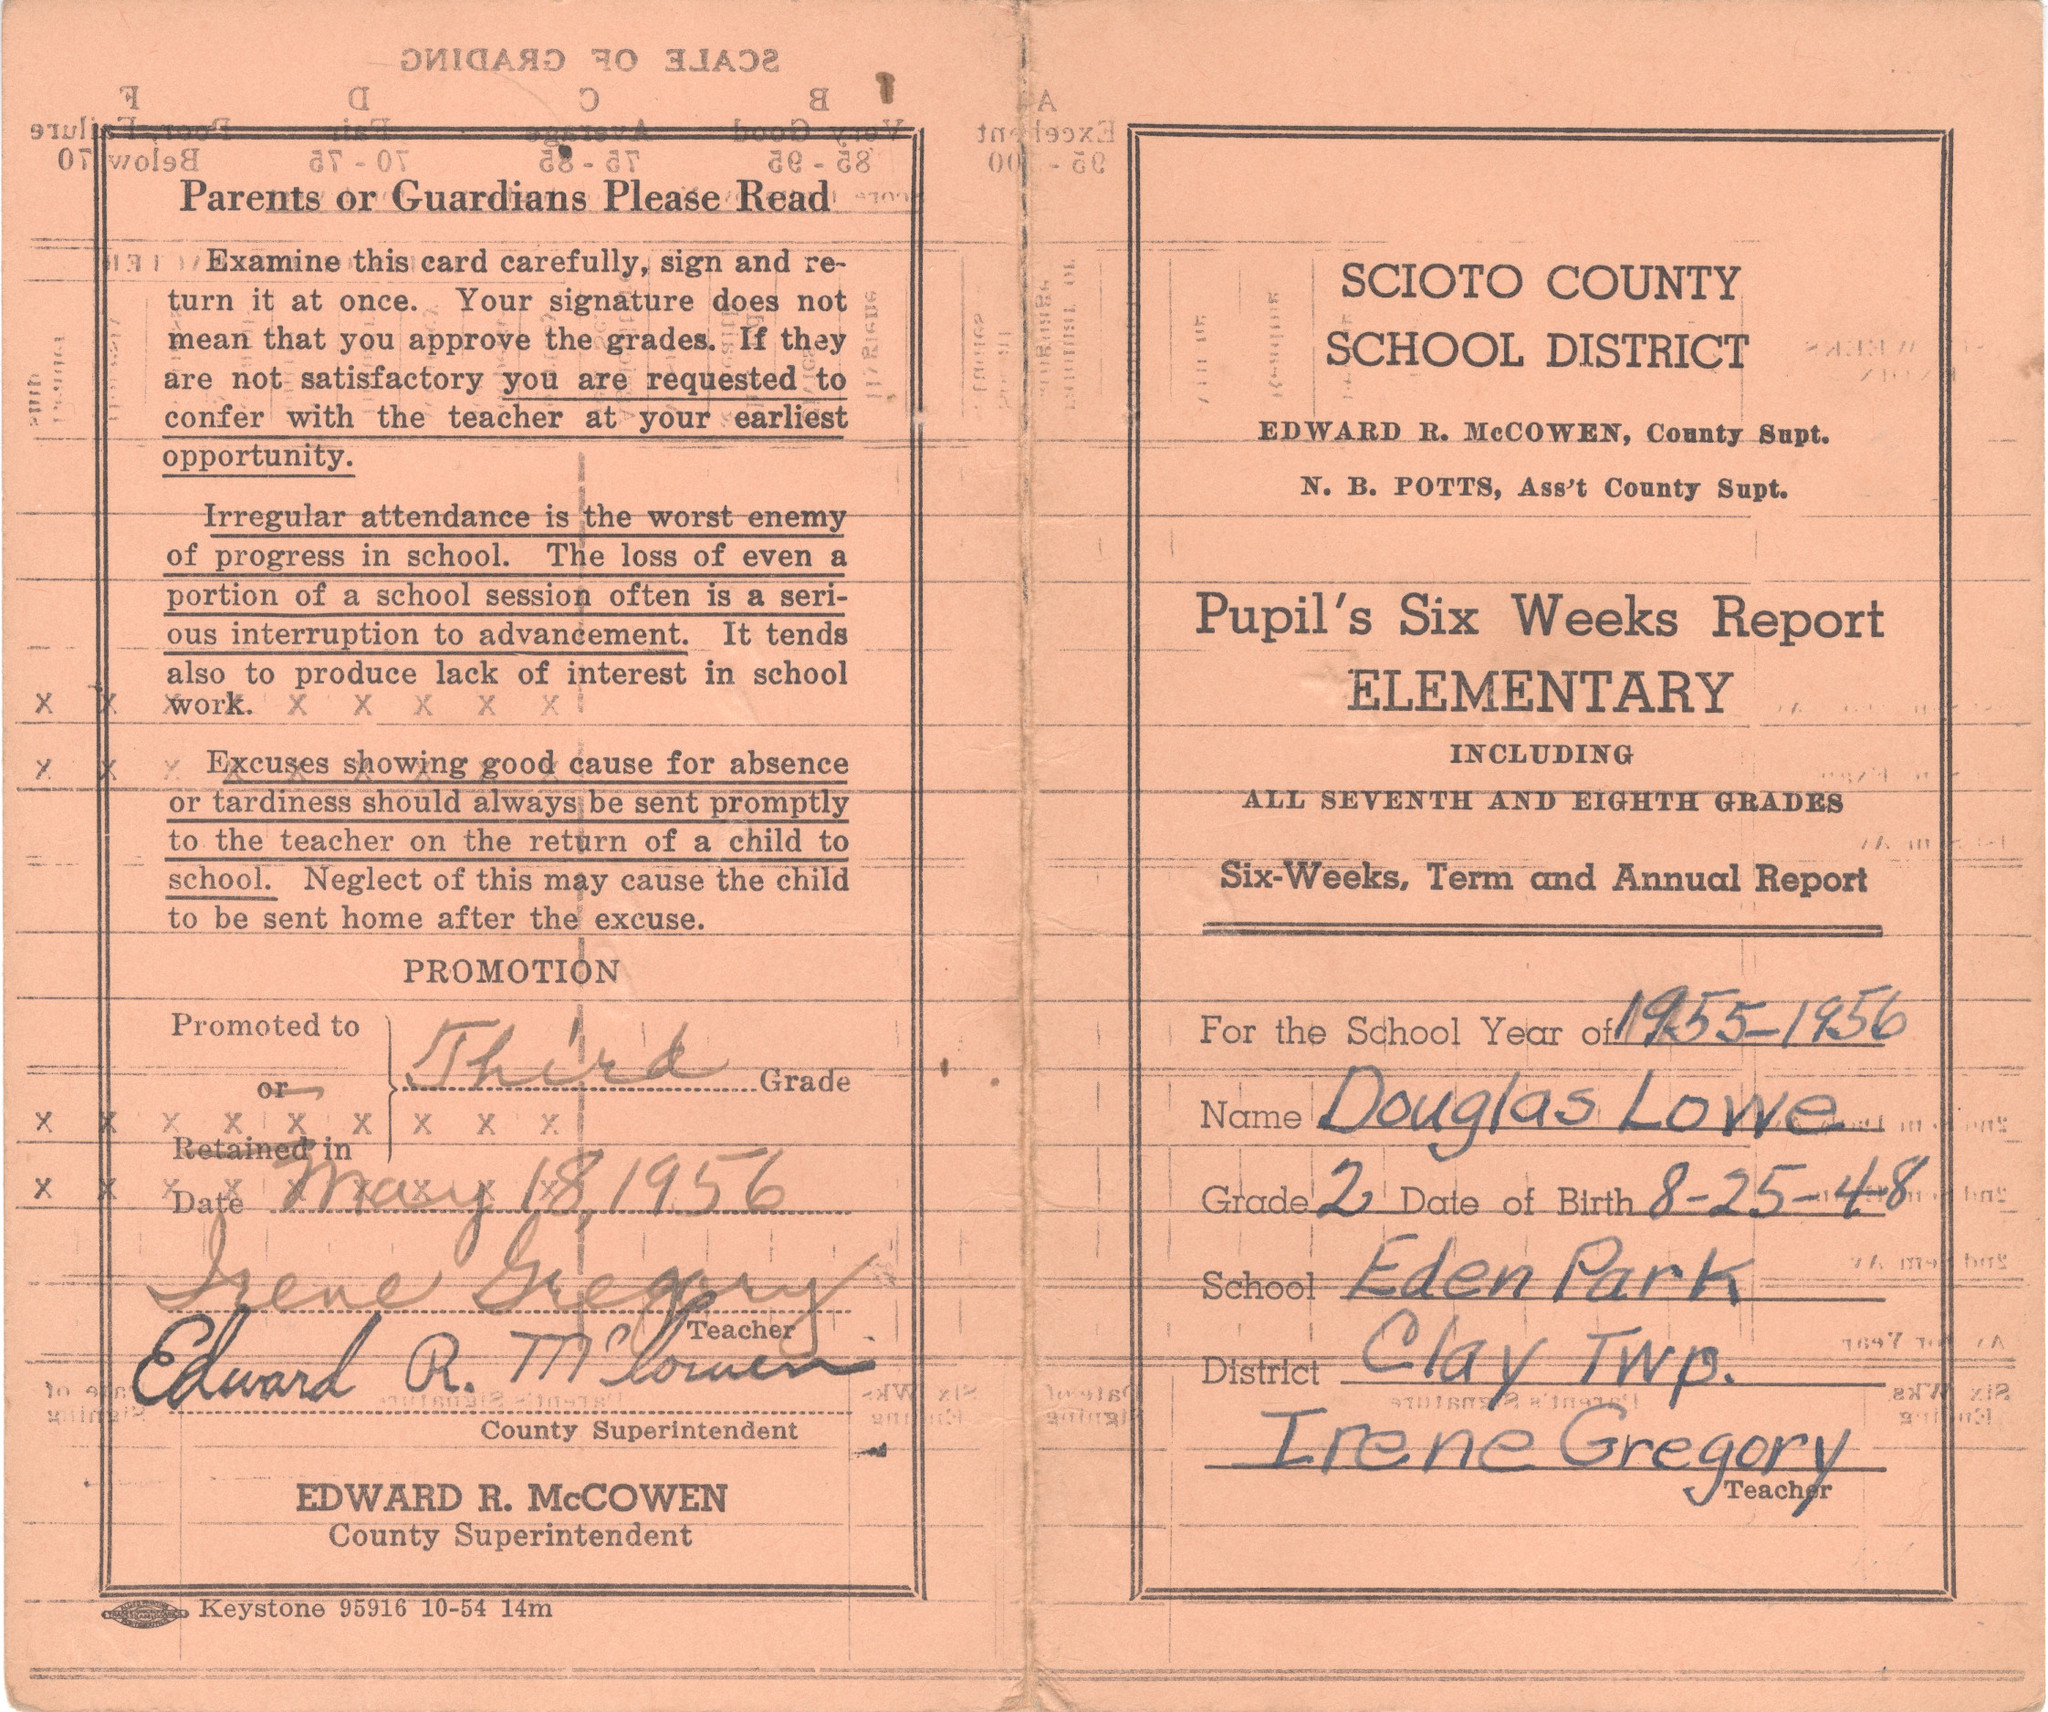 Parents or Guardians Please Read
Examine this card carefully, sign and re-
turn it at once. Your signature does not
mean that you approve the grades. If they
are not satisfactory you are requested to
confer with the teacher at your earliest
opportunity.
Irregular attendance is the worst enemy
of progress in school. The loss of even a
portion of a school session often is a seri-
ous interruption to advancement. It tends
also to produce lack of interest in school
work.
Excuses showing good cause for absence
or tardiness should always be sent promptly
to the teacher on the return of a child to
school. Neglect of this may cause the child
to be sent home after the excuse.
PROMOTION
Promoted to
or
Retained in
Third Grade
Date May 18, 1956
Irene Gregory
Teacher
Edward R. McCowen
County Superintendent
EDWARD R. McCOWEN
County Superintendent
Keystone 95916 10-54 14m
SCIOTO COUNTY
SCHOOL DISTRICT
EDWARD R. McCOWEN, County Supt.
N. B. POTTS, Ass't County Supt.
Pupil's Six Weeks Report
ELEMENTARY
INCLUDING
ALL SEVENTH AND EIGHTH GRADES
Six-Weeks, Term and Annual Report
For the School Year of 1955-1956
Name Douglas Lowe
Grade 2 Date of Birth 8-25-48
School Eden Park
District Clay Twp.
Irene Gregory
Teacher
SCALE OF GRADING
A B C D F
Excellent Very Good Average Fair Poor, Failure
95 - 100 85 - 95 75 - 85 70 - 75 Below 70